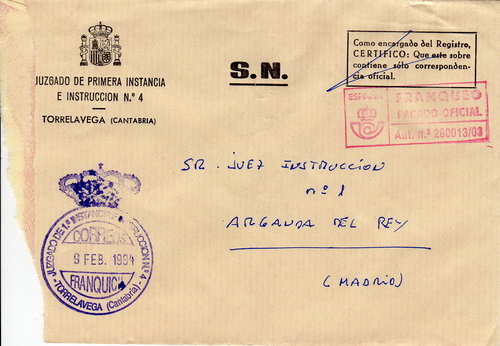 JUZGADO DE PRIMERA INSTANCIA
E INSTRUCCION N.º 4
TORRELAVEGA (CANTABRIA)
S.N.
Como encargado del Registro,
CERTIFICO: Que este sobre
contiene sólo corresponden-
cia oficial.
ESPAÑA
FRANQUEO
PAGADO OFICIAL
Aut. n.º 280013/03
SR. JUEZ INSTRUCCION
nº 1
ARGANDA DEL REY
(MADRID)
JUZGADO DE 1ª INSTANCIA E INSTRUCCION N.º 4
CORREOS
9 FEB. 1994
FRANQUICIA
-TORRELAVEGA (Cantabria)-